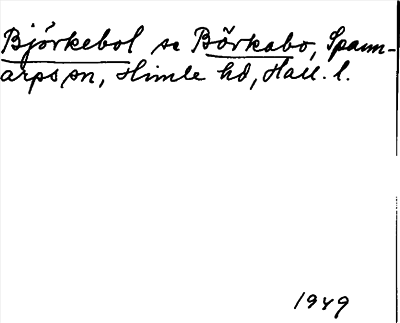 Björkebol se Börkabo, Spann-
arps sn, Himle hd, Hall. l.
1949